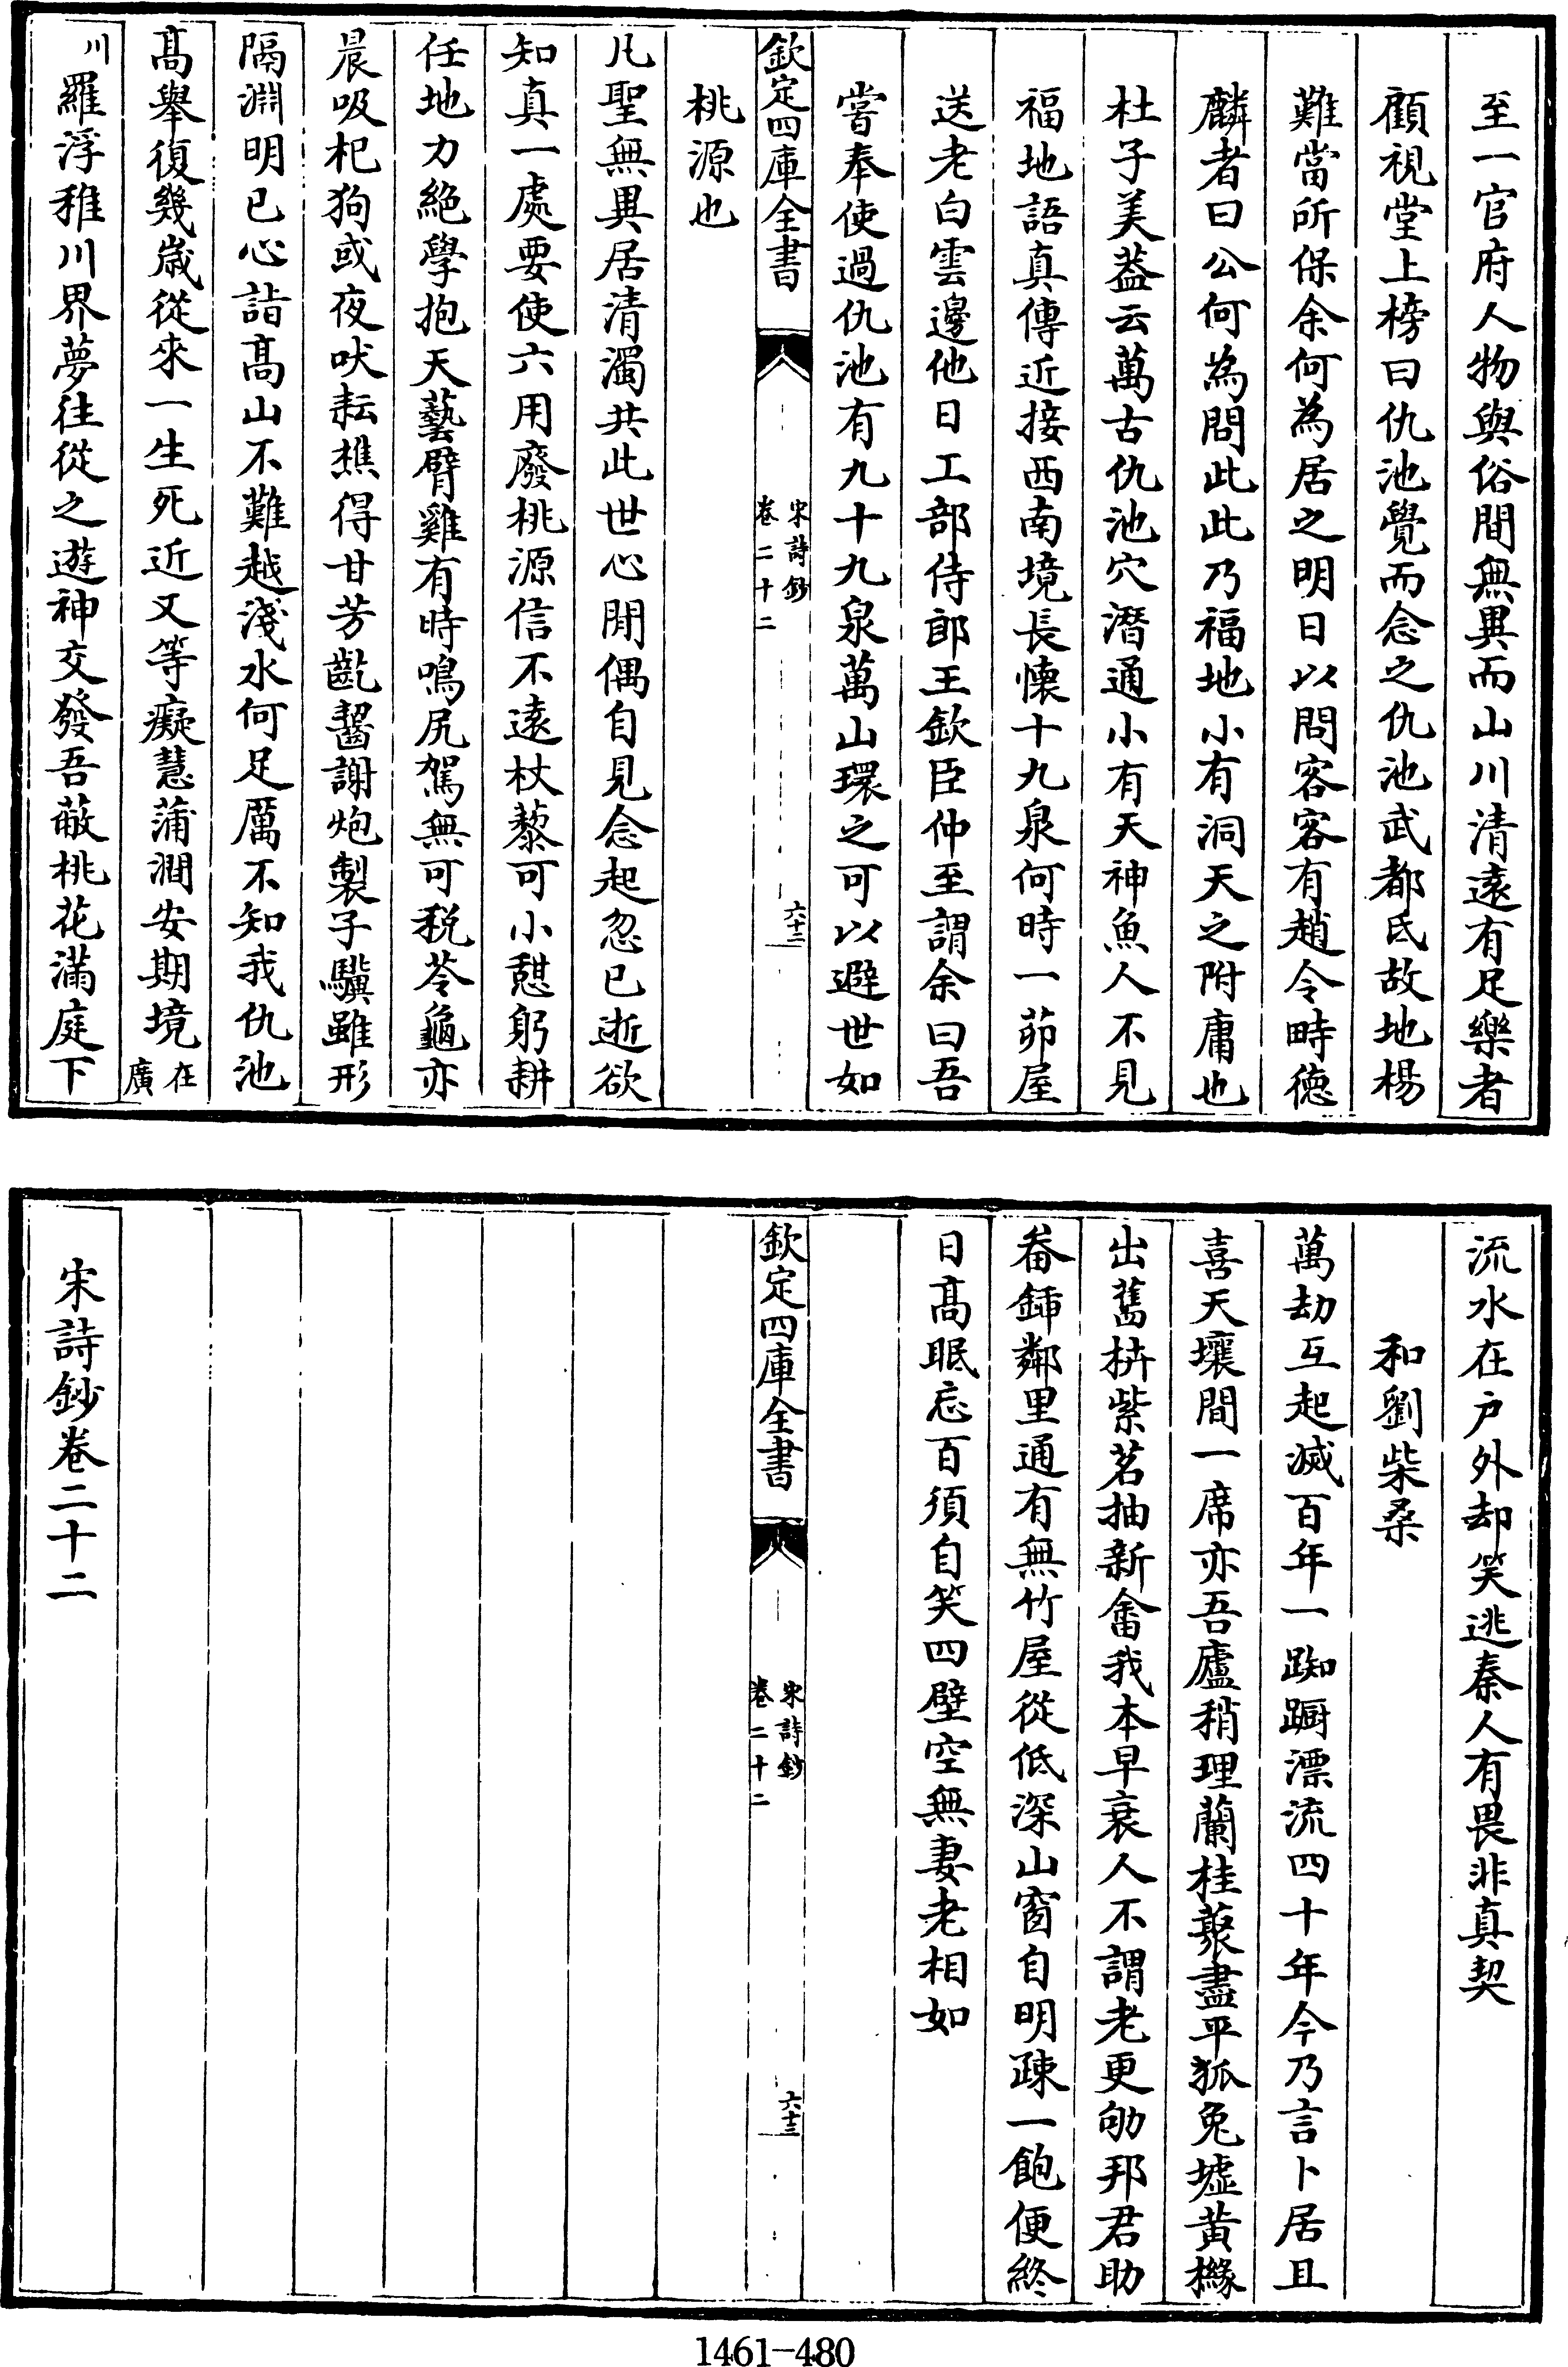 至一官府人物與俗間無異而山川清遠有足樂者
顧視堂上榜曰仇池覺而念之仇池武都氐故地楊
難當所保余何為居之明日以問客客有趙令畤德
麟者曰公何為問此此乃福地小有洞天之附庸也
杜子美葢云萬古仇池穴潛通小有天神魚人不見
福地語真傳近接西南境長懷十九泉何時一茆屋
送老白雲邊他日工部侍郎王欽臣仲至謂余曰吾
嘗奉使過仇池有九十九泉萬山環之可以避世如
欽定四庫全書
宋詩鈔
卷二十二
六十二
桃源也
凡聖無異居清濁共此世心閒偶自見念起忽已逝欲
知真一處要使六用廢桃源信不遠杖藜可小憇躬耕
任地力絶學抱天藝臂雞有時鳴尻駕無可税苓龜亦
晨吸杞狗或夜吠耘樵得甘芳齕齧謝炮製子驥雖形
隔淵明已心詣髙山不難越淺水何足厲不知我仇池
髙舉復幾歲從來一生死近又等癡慧蒲澗安期境在廣
川羅浮稚川界夢往從之遊神交發吾蔽桃花滿庭下
流水在户外却笑逃秦人有畏非真契
和劉柴桑
萬劫互起滅百年一踟躕漂流四十年今乃言卜居且
喜天壤間一席亦吾廬稍理蘭桂藂盡平狐兔墟黃櫞
出舊枿紫茗抽新畬我本早衰人不謂老更劬邦君助
畚鍤鄰里通有無竹屋從低深山窗自明疎一飽便終
日髙眠忘百須自笑四壁空無妻老相如
欽定四庫全書
宋詩鈔
卷二十二
六十三
宋詩鈔卷二十二
1461-480